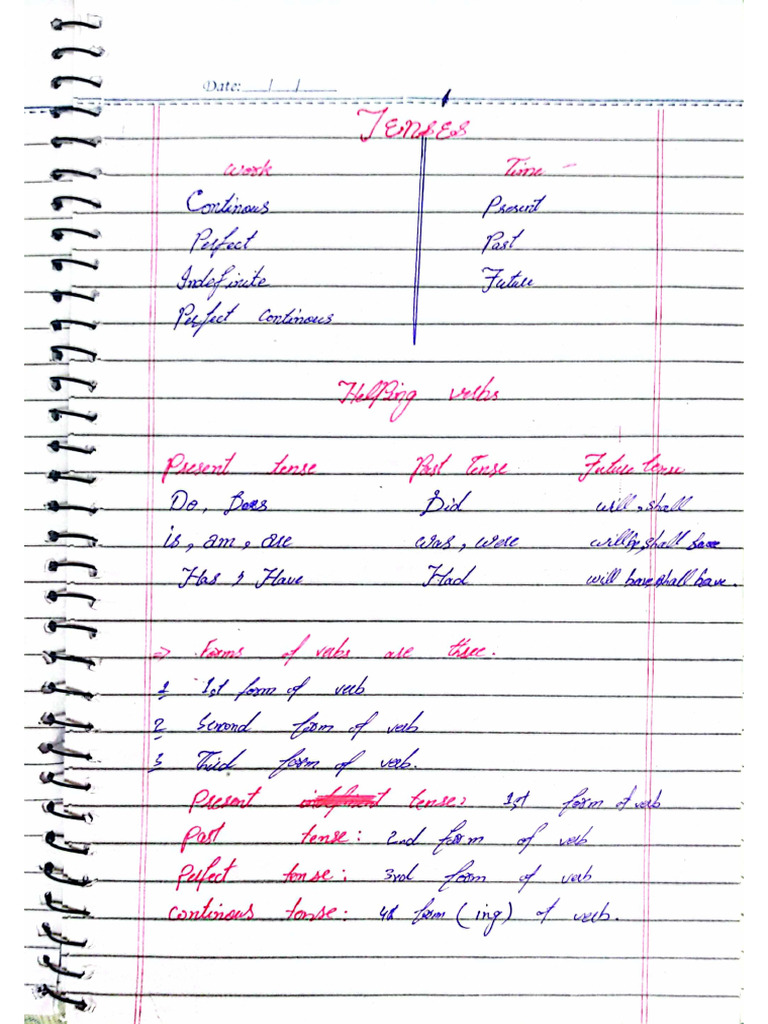 Date: __/__/____
Tenses
work Time –
Continous Present
Perfect Past
Indefinite Future
Perfect continous
Helping verbs
Present tense Past Tense Future tense
Do, Does Did will, shall
is, am, are was, were
Has, Have Had will have, shall have.
⇒ Forms of verbs are three.
1 1st form of verb
2 Second form of verb
3 Third form of verb.
Present tense: 1st form of verb
Past tense: 2nd form of verb
Perfect tense: 3rd form of verb
Continous tense: 4th form (ing) of verb.